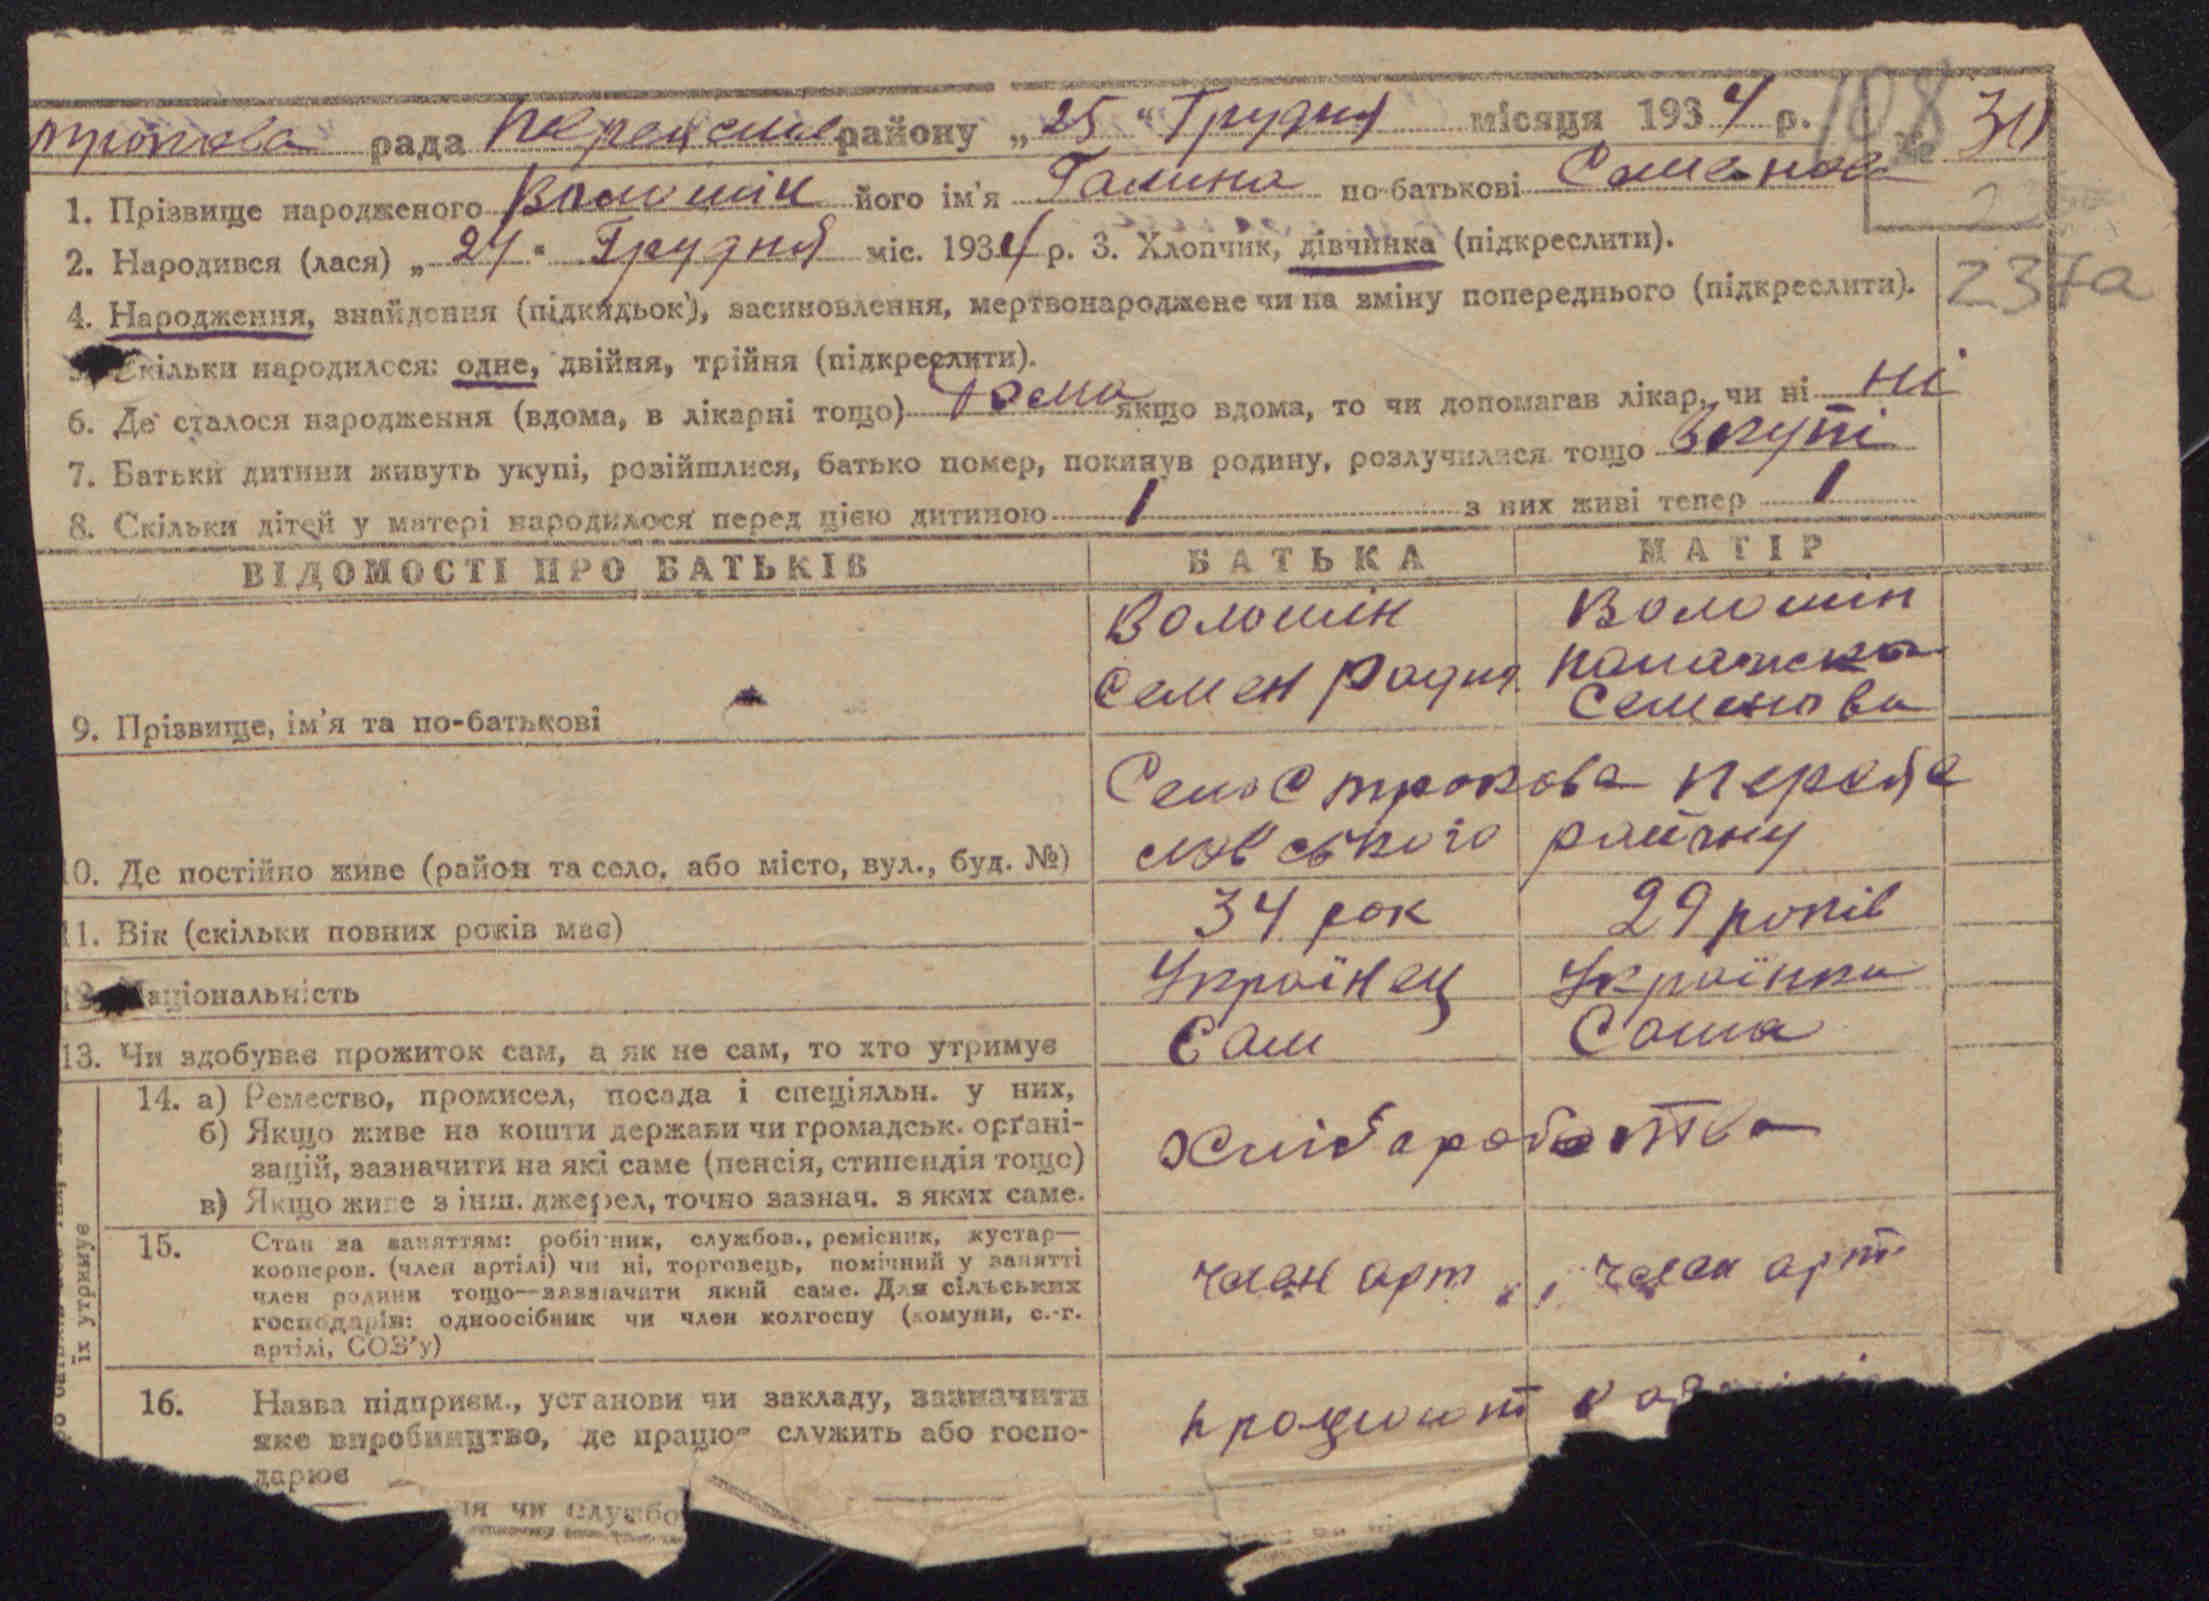 рада району „25“ Грудня місяця 1934 р. № 30
108
1. Прізвище народженого Волошін його ім'я Галина по-батькові
2
2. Народився (лася) „24“ Грудня міс. 1934 р. 3. Хлопчик, дівчинка (підкреслити).
237а
4. Народження, знайдення (підкидьок), засиновлення, мертвонароджене чи на зміну попереднього (підкреслити).
Скільки народилося: одне, двійня, трійня (підкреслити).
6. Де сталося народження (вдома, в лікарні тощо) якщо вдома, то чи допомагав лікар, чи ні ні
7. Батьки дитини живуть укупі, розійшлися, батько помер, покинув родину, розлучилися тощо вкупі
8. Скільки дітей у матері народилося перед цією дитиною 1 з них живі тепер 1
ВІДОМОСТІ ПРО БАТЬКІВ БАТЬКА МАТІР
Волошін Волошин
Семен Палажка
Семенова
9. Прізвище, ім'я та по-батькові
Село Строкова Переяс
лавського району
10. Де постійно живе (район та село, або місто, вул., буд. №)
11. Вік (скільки повних років має) 34 рок 29 років
12. Національність Українец Українка
13. Чи здобуває прожиток сам, а як не сам, то хто утримує Сам Сама
14. а) Ремество, промисел, посада і спеціяльн. у них,
б) Якщо живе на кошти держави чи громадськ. орґані-
зацій, зазначити на які саме (пенсія, стипендія тощо)
в) Якщо живе з інш. джерел, точно зазнач. з яких саме.
Хлібаробство
15. Стан за заняттям: робітник, службов., ремісник, кустар—
кооперов. (член артілі) чи ні, торговець, помічний у занятті
член родини тощо—зазначити який саме. Для сільських
господарів: одноосібник чи член колгоспу (комуни, с.-г.
артілі, СОЗ'у)
член арт член арт
їх утримує
16. Назва підприєм., установи чи закладу, зазначити
яке виробництво, де працює служить або госпо-
дарює
працюют в
чи службо